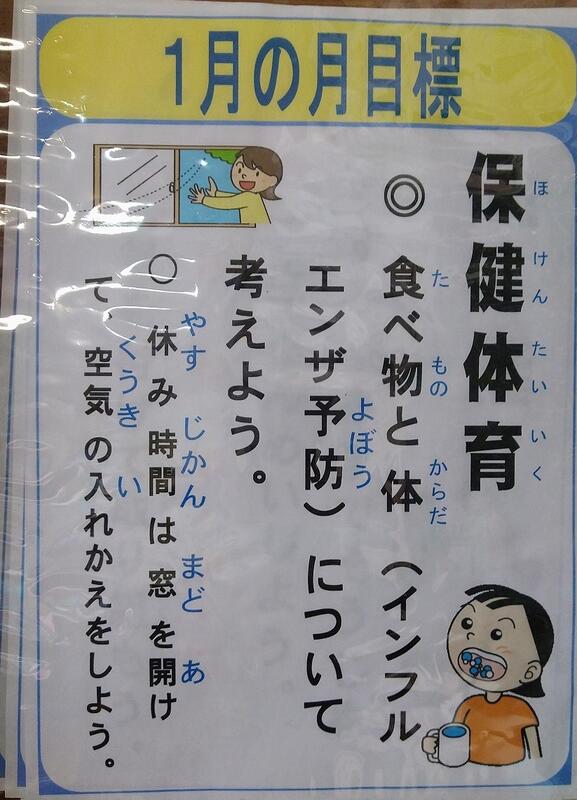 1月の月目標
保健体育
ほけんたいいく
◎ 食べ物と体(インフル
た もの からだ
エンザ予防)について
よぼう
考えよう。
○ 休み時間は窓を開け
やす じかん まど あ
て、空気の入れかえをしよう。
くうき い